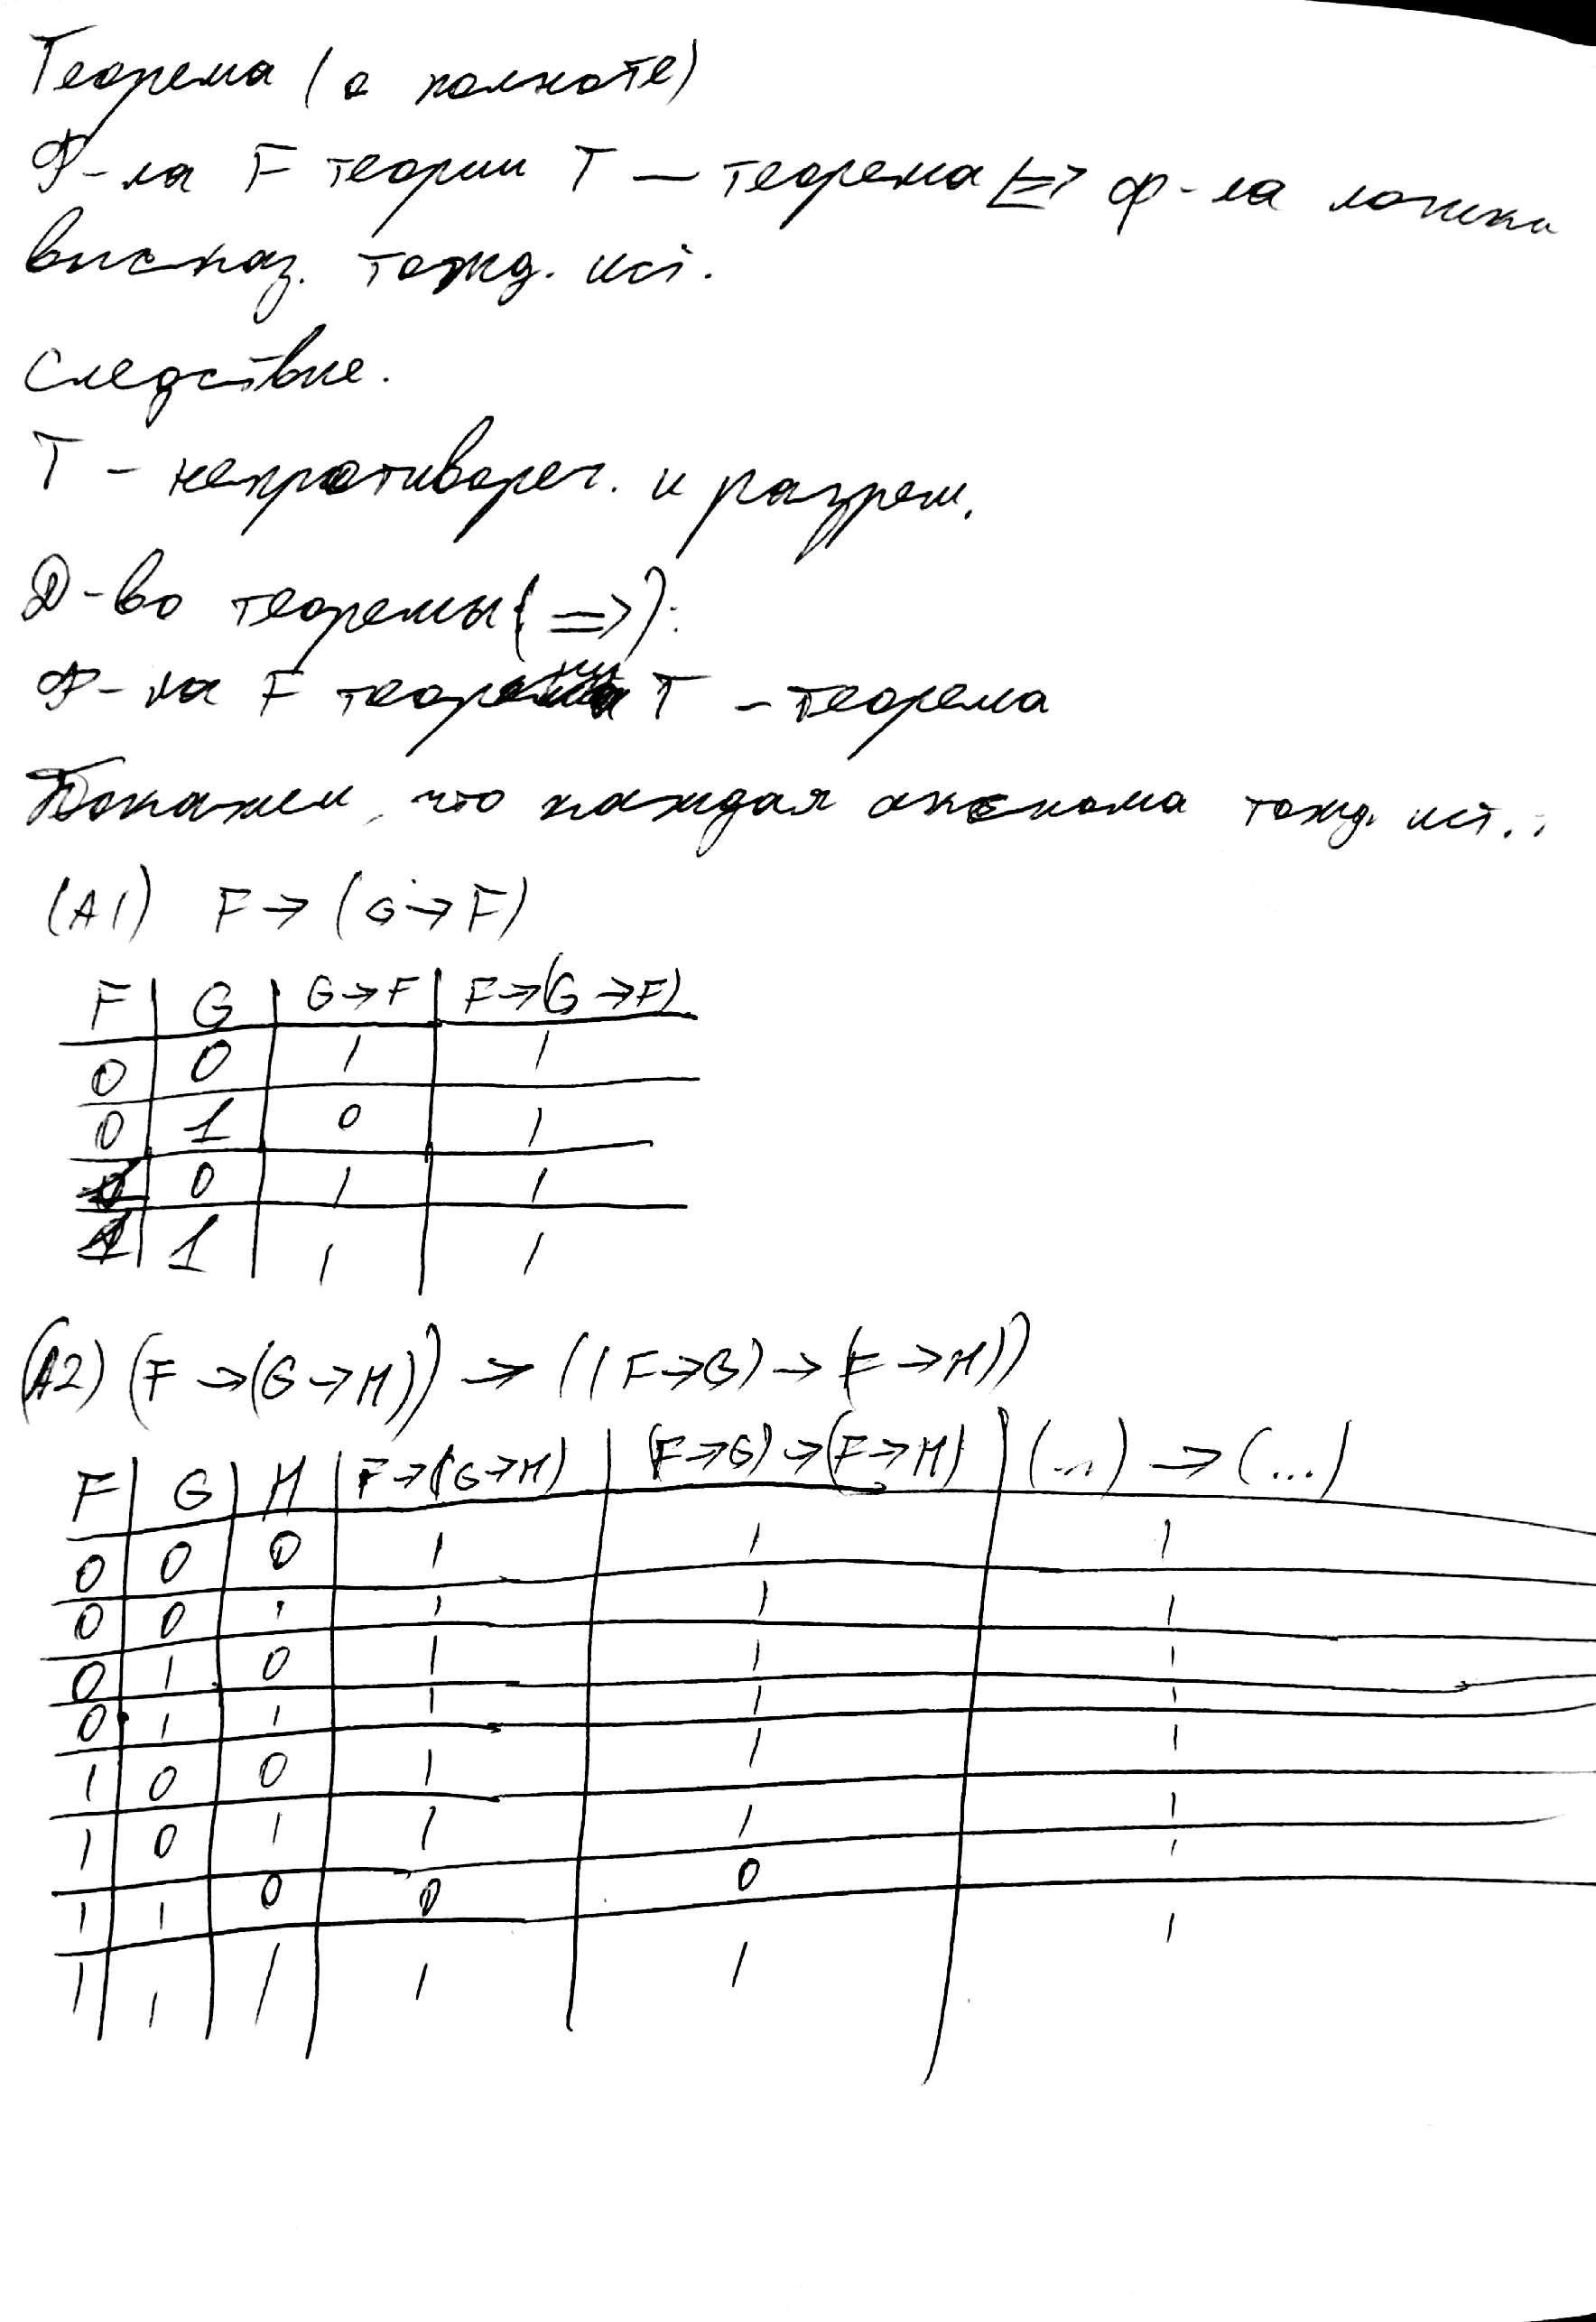 Теорема (о полноте)
Ф-ла F теории T — теорема <=> ф-ла логики
высказ. тожд. ист.
Следствие.
T - непротивореч. и разреш.
Д-во теоремы (=>):
Ф-ла F теории T - теорема
Покажем, что каждая аксиома тожд. ист.:
(A1) F → (G → F)
F | G | G → F | F → (G → F)
0 | 0 | 1 | 1
0 | 1 | 0 | 1
0 | 1 | 1
1 | 1 | 1 | 1
(A2) (F → (G → H)) → ((F → G) → (F → H))
F | G | H | F → (G → H) | (F → G) → (F → H) | (...) → (...)
0 | 0 | 0 | 1 | 1 | 1
0 | 0 | 1 | 1 | 1 | 1
0 | 1 | 0 | 1 | 1 | 1
0 | 1 | 1 | 1 | 1 | 1
1 | 0 | 0 | 1 | 1 | 1
1 | 0 | 1 | 1 | 1 | 1
1 | 1 | 0 | 0 | 0 | 1
1 | 1 | 1 | 1 | 1 | 1